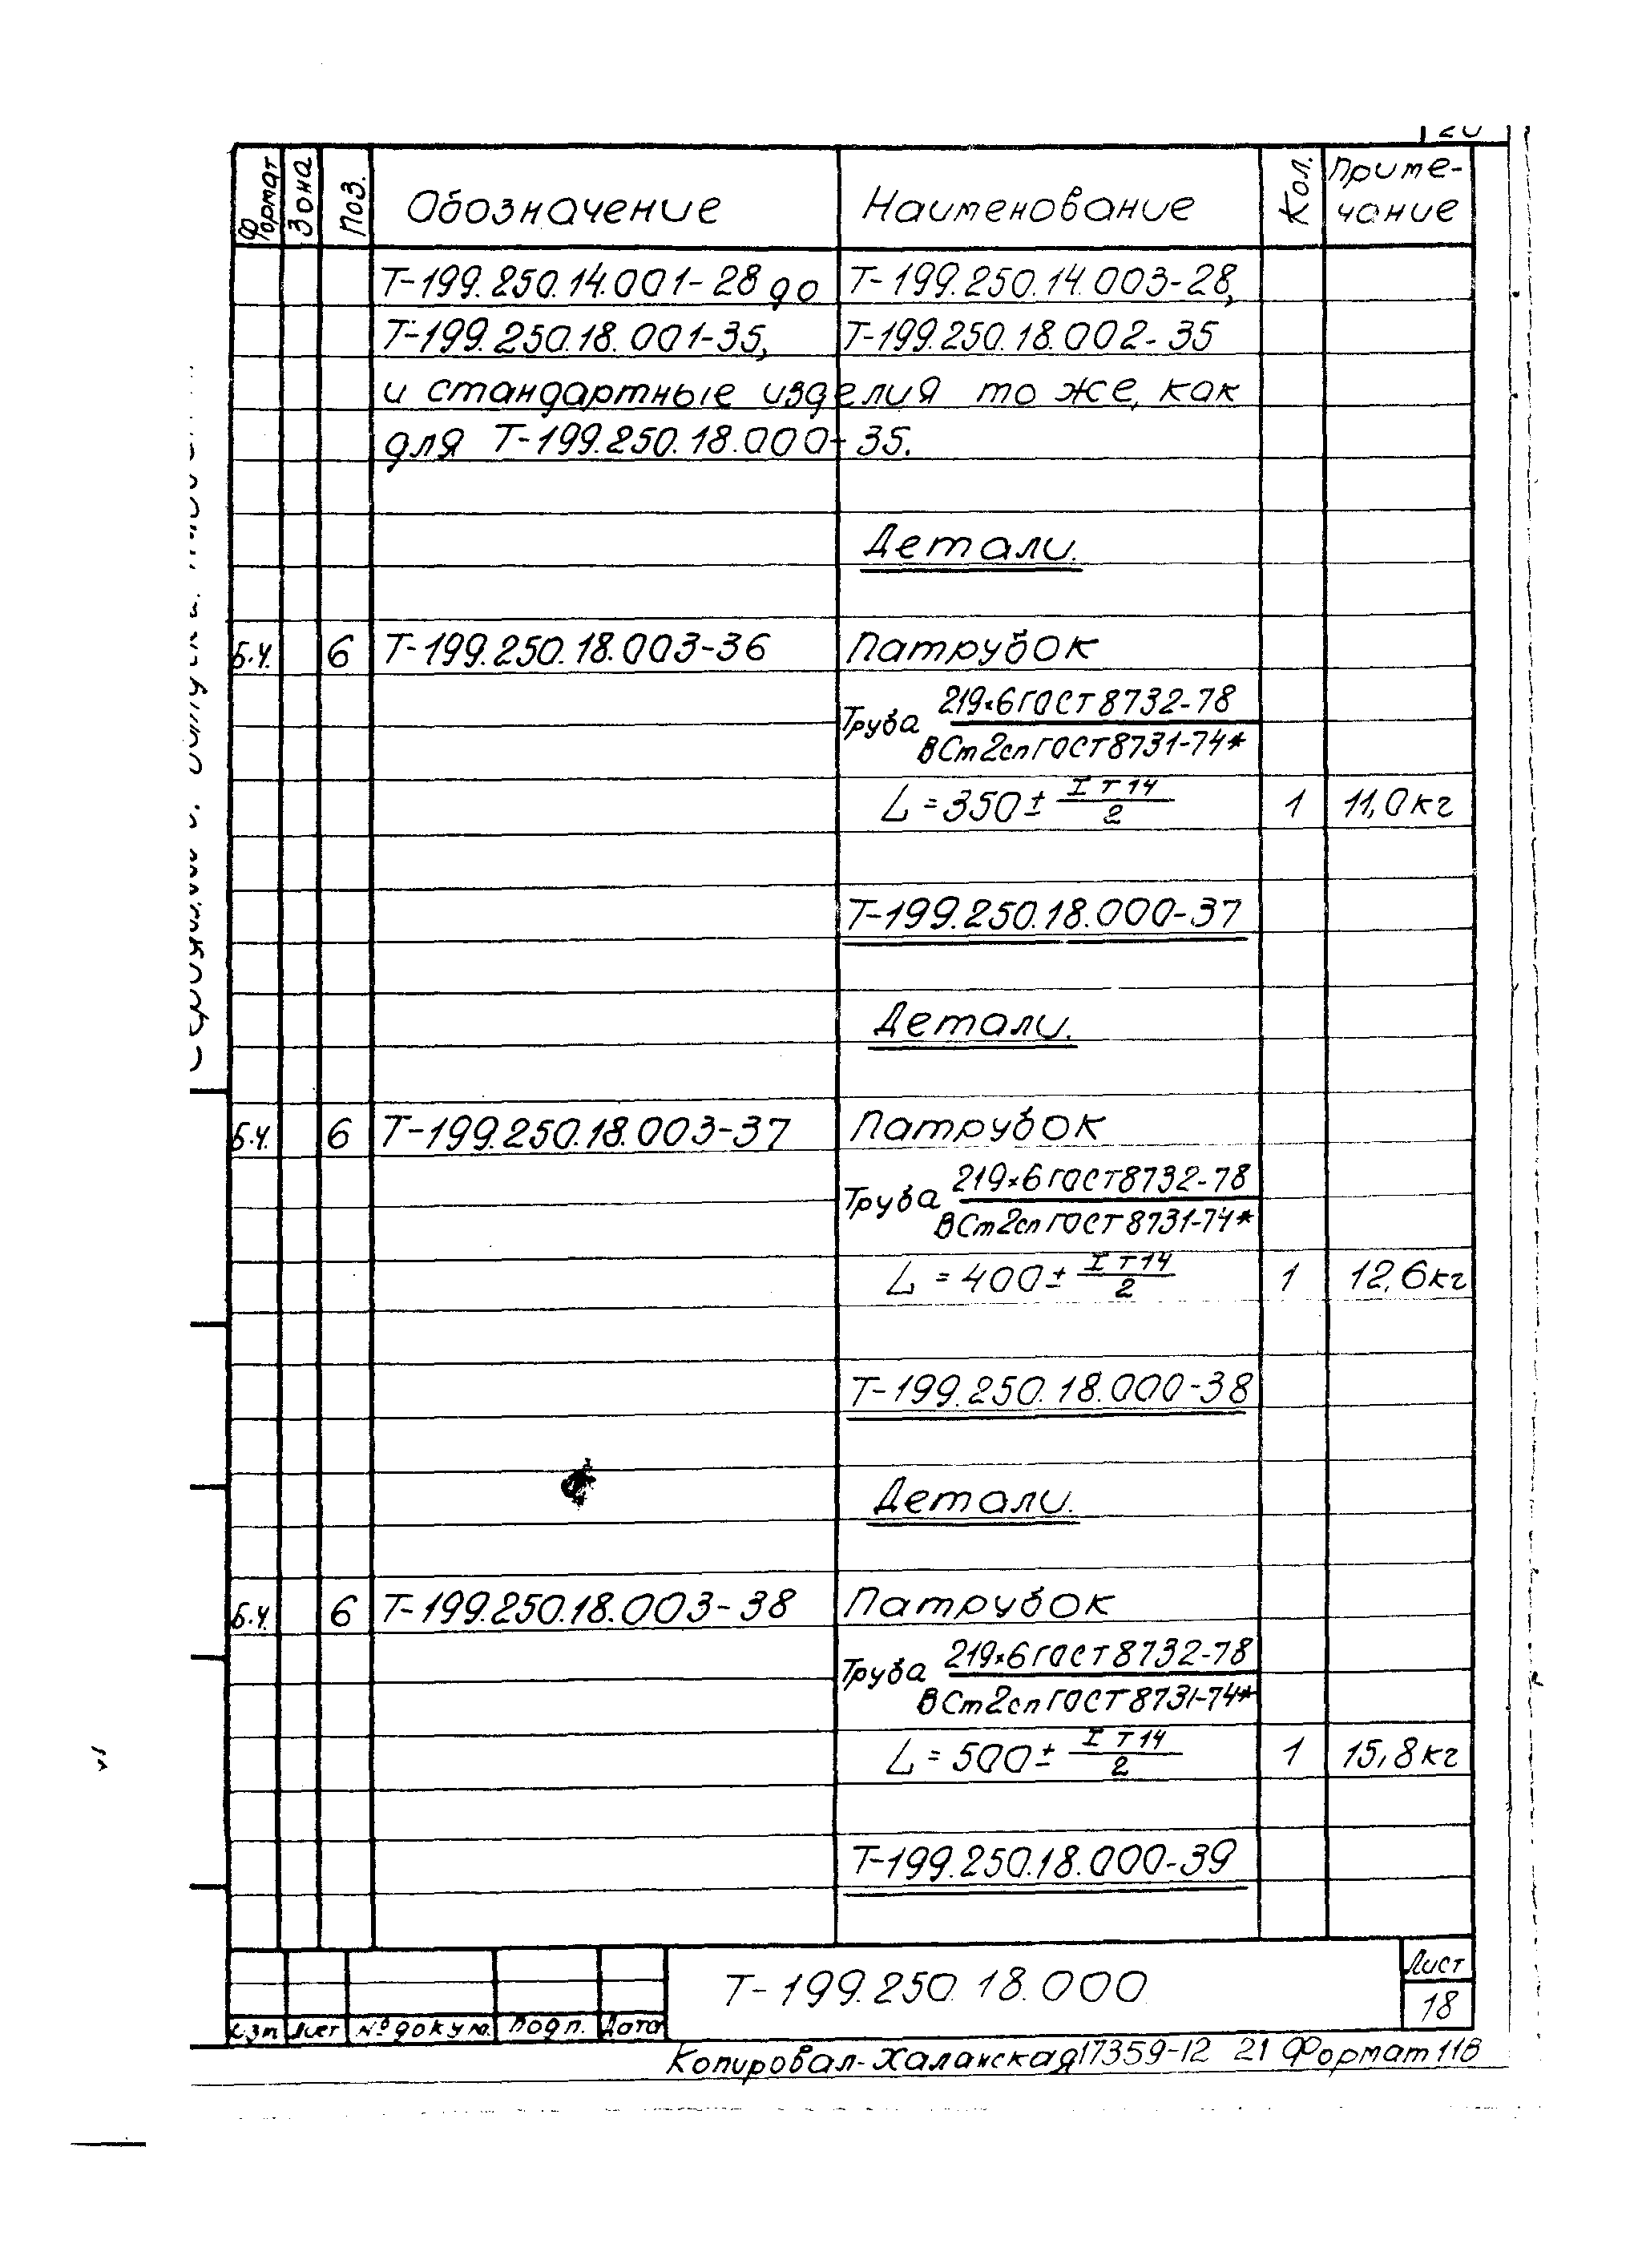 20
Формат Зона Поз. Обозначение Наименование Кол. Приме-
чание
Т-199.250.14.001-28 до Т-199.250.14.003-28,
Т-199.250.18.001-35, Т-199.250.18.002-35
и стандартные изделия то же, как
для Т-199.250.18.000-35.
Детали.
Б.Ч. 6 Т-199.250.18.003-36 Патрубок
Труба 219×6 ГОСТ 8732-78
ВСт2сп ГОСТ 8731-74*
L=350± IT14/2 1 11,0кг
Т-199.250.18.000-37
Детали.
Б.Ч. 6 Т-199.250.18.003-37 Патрубок
Труба 219×6 ГОСТ 8732-78
ВСт2сп ГОСТ 8731-74*
L=400± IT14/2 1 12,6кг
Т-199.250.18.000-38
Детали.
Б.Ч. 6 Т-199.250.18.003-38 Патрубок
Труба 219×6 ГОСТ 8732-78
ВСт2сп ГОСТ 8731-74*
L=500± IT14/2 1 15,8кг
Т-199.250.18.000-39
Т-199.250.18.000 Лист
18
Изм Лист № докум. Подп. Дата
Копировал-Халанская 17359-12 21 Формат 11В